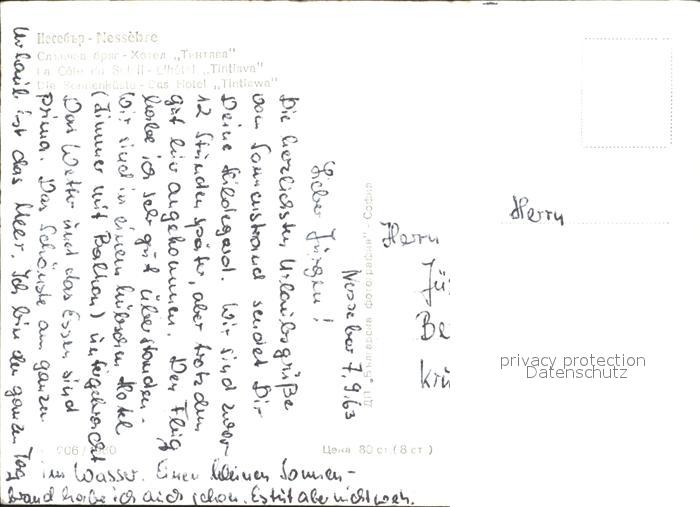 Несебър - Nessèbre
Слънчев бряг - Хотел „Тинтява"
La Côte du Soleil - L'hôtel „Tintiava"
Die Sonnenküste - Das Hotel „Tintiawa"
Nessebar 7.9.63
Lieber Jürgen!
Die herzlichsten Urlaubsgrüße
vom Sonnenstrand sendet Dir
Deine Hildegard. Wir sind zwar
12 Stunden später, aber trotzdem
gut hier angekommen. Den Flug
habe ich sehr gut überstanden.
Wir sind in einem hübschen Hotel
(Zimmer mit Balkon) untergebracht
Das Wetter und das Essen sind
prima. Das Schönste am ganzen
Urlaub ist das Meer. Ich bin den ganzen Tag
im Wasser. Einen kleinen Sonnen-
brand habe ich auch schon. Es tut aber nicht weh.
ДП „Българска фотография" - София
Цена 80 ст. (8 ст.)
Herrn
Herrn
Jü
Be
krü
privacy protection
Datenschutz